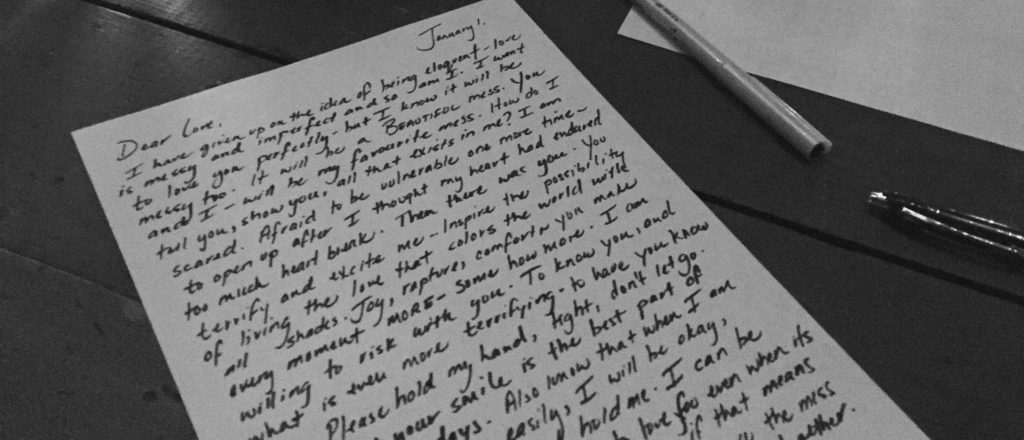 January 1.
Dear Love,
I have given up on the idea of being eloquent - love
is messy and imperfect and so am I. I want
to love you perfectly - but I know it will be
messy too. It will be a BEAUTIFUL mess. You
and I - will be my favourite mess. How do I
tell you, show you, all that exists in me? I am
scared. Afraid to be vulnerable one more time -
to open up after I thought my heart had endured
too much heart break. Then there was you. You
terrify and excite me - Inspire the possibility
of living the love that colors the world with
all shades. Joy, rapture, comfort you make
every moment MORE - some how more. I am
willing to risk with you. To know you, and
what is even more terrifying - to have you know
Please hold my hand, tight, don't let go.
your smile is the best part of
days. Also know that when I am
easily, I will be okay,
hold me. I can be
love you even when its
if that means
the miss